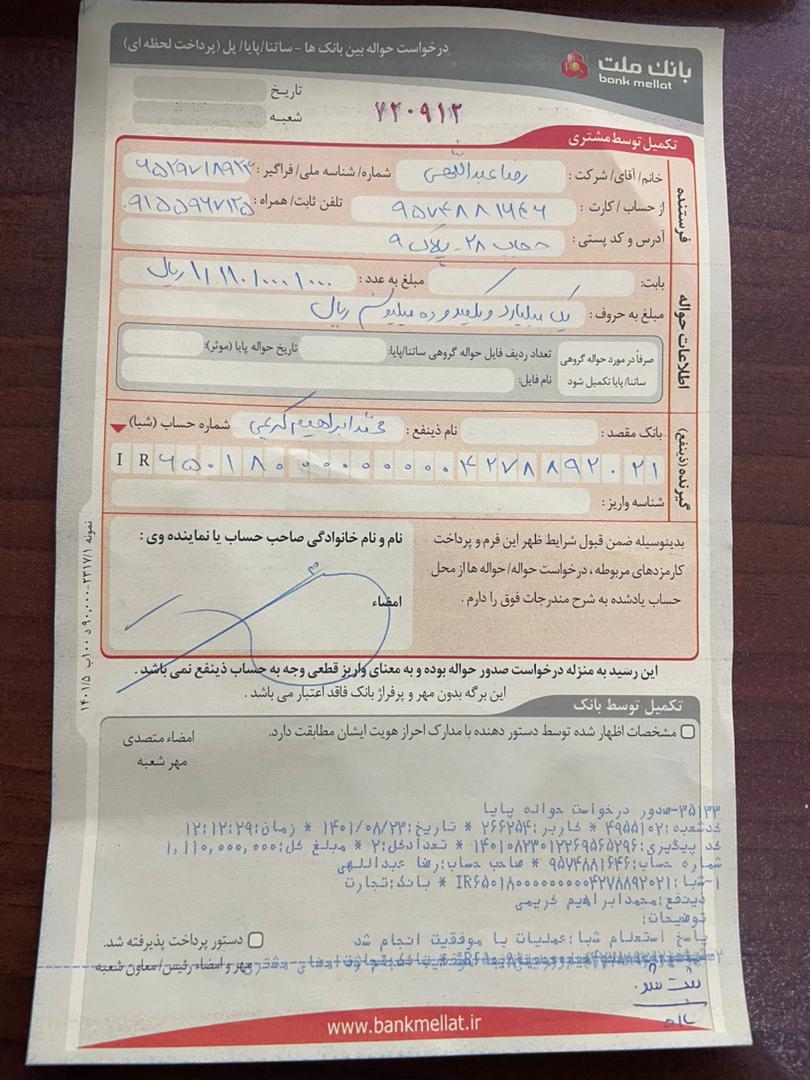 درخواست حواله بین بانک ها - ساتنا/پایا/پل (پرداخت لحظه ای)
بانک ملت
bank mellat
تاریخ
شعبه
۷۲۰۹۱۲
تکمیل توسط مشتری
فرستنده
خانم/آقای/شرکت: رضا عبداللهی شماره/شناسه ملی/فراگیر:
از حساب/کارت: ۹۵۷۴۸۸۱۶۴۶ تلفن ثابت/همراه: ۰۹۱۵۵۹۶۷۱۲۵
آدرس و کد پستی: حجاب ۲۸ - پلاک ۹
اطلاعات حواله
بابت: مبلغ به عدد: ۱/۱۱۰/۰۰۰/۰۰۰ ریال
مبلغ به حروف: یک میلیارد و یکصد و ده میلیون ریال
صرفاً در مورد حواله گروهی ساتنا/پایا تکمیل شود
تعداد ردیف فایل حواله گروهی ساتنا/پایا: تاریخ حواله پایا (موثر):
نام فایل:
گیرنده (ذینفع)
بانک مقصد: نام ذینفع: محمدابراهیم کریمی شماره حساب (شبا)
IR ۶۵۰۱۸۰۰۰۰۰۰۰۰۰۴۲۷۸۸۹۲۰۲۱
شناسه واریز:
بدینوسیله ضمن قبول شرایط ظهر این فرم و پرداخت
کارمزدهای مربوطه، درخواست حواله/حواله ها از محل
حساب یادشده به شرح مندرجات فوق را دارم.
نام و نام خانوادگی صاحب حساب یا نماینده وی:
امضاء
این رسید به منزله درخواست صدور حواله بوده و به معنای واریز قطعی وجه به حساب ذینفع نمی باشد.
این برگه بدون مهر و پرفراژ بانک فاقد اعتبار می باشد.
نمونه ۲۳۱۷/۱-۹۰,۰۰۰ د ۱۰۰ب ۱۴۰۱/۵
تکمیل توسط بانک
مشخصات اظهار شده توسط دستور دهنده با مدارک احراز هویت ایشان مطابقت دارد.
امضاء متصدی
مهر شعبه
۳۵۱۳۳-صدور درخواست حواله پایا
کدشعبه:۴۹۵۵۱۰۲ * کاربر:۲۶۶۲۵۴ * تاریخ:۱۴۰۱/۰۸/۲۳ * زمان:۱۲:۱۲:۲۹
کد پیگیری:۱۴۰۱۰۸۲۳۰۱۲۲۶۹۵۶۵۲۹۶ * تعدادکل:۲ * مبلغ کل:۱,۱۱۰,۰۰۰,۰۰۰
شماره حساب:۹۵۷۴۸۸۱۶۴۶ * صاحب حساب:رضا عبداللهی
۱-شبا:IR۶۵۰۱۸۰۰۰۰۰۰۰۰۰۴۲۷۸۸۹۲۰۲۱ * بانک:تجارت
ذینفع:محمدابراهیم کریمی
توضیحات:
پاسخ استعلام شبا:عملیات با موفقیت انجام شد
دستور پرداخت پذیرفته شد.
مهر و امضاء رئیس/معاون شعبه
ثبت شد.
www.bankmellat.ir